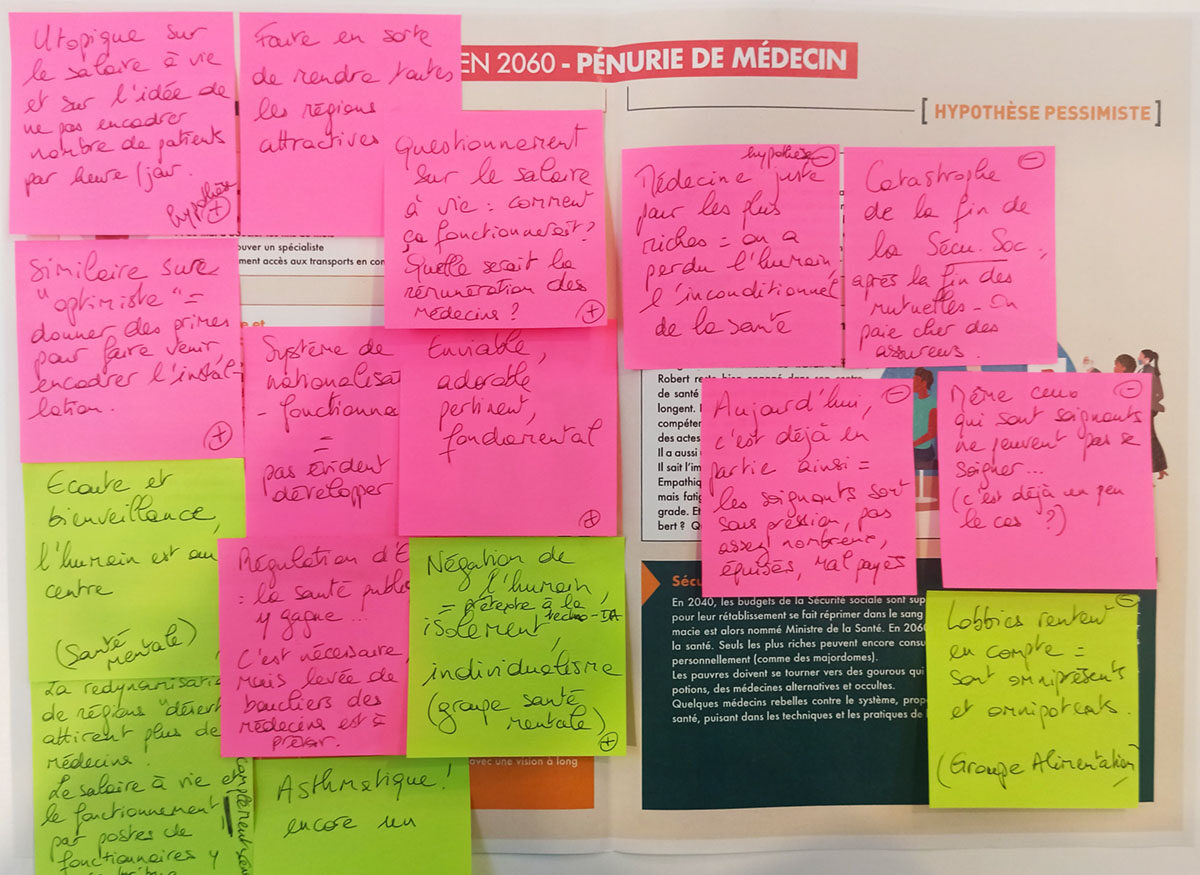 EN 2060 - PÉNURIE DE MÉDECIN
[ HYPOTHÈSE PESSIMISTE ]
Utopique sur
le salaire à vie
et sur l'idée de
ne pas encadrer
nombre de patients
par heure/jour.
hypothèse
+
Faire en sorte
de rendre toutes
les régions
attractives
Questionnement
sur le salaire
à vie : comment
ça fonctionnerait ?
Quelle serait la
rémunération des
médecins ?
+
ouver un spécialiste
ment accès aux transports en com
Similaire sur
"optimiste" =
donner des primes
pour faire venir,
encadrer l'instal-
lation.
+
Système de
nationalisat
- fonctionna
=
pas évident
développer
Enviable,
adorable
pertinent,
fondamental
+
Ecoute et
bienveillance,
l'humain est au
centre
(Santé
mentale)
Régulation d'E
= la santé publi
y gagne ...
C'est nécessaire,
mais levée de
boucliers des
médecins est à
prévoir.
Négation de
l'humain,
= prétexte à la
techno-IA
isolement,
individualisme
(groupe santé
mentale)
+
La redynamisatio
de régions "désert
attirent plus de
médecins.
Le salaire à vie et
le fonctionnement
par postes de
fonctionnaires y
Asthmatique !
encore un
avec une vision à long
hypothèse -
Médecine juste
pour les plus
riches = on a
perdu l'humain,
l'inconditionnel
de la santé
-
Catastrophe
de la fin de
la Sécu. Soc,
après la fin des
mutuelles - On
paie cher des
assureurs.
Robert reste bien engagé dans son centre
de santé
longent.
compéten
des actes
Il a aussi
Il sait l'im
Empathiq
mais fatig
grade. Et
bert ? Qu
-
Aujourd'hui,
c'est déjà en
partie ainsi =
les soignants sont
sous pression, pas
assez nombreux,
épuisés, mal payés
-
Même ceux
qui sont soignants
ne peuvent pas se
soigner...
(c'est déjà un peu
le cas ?)
Sécu
En 2040, les budgets de la Sécurité sociale sont sup
pour leur rétablissement se fait réprimer dans le sang
macie est alors nommé Ministre de la Santé. En 2060
la santé. Seuls les plus riches peuvent encore consu
personnellement (comme des majordomes).
Les pauvres doivent se tourner vers des gourous qui
potions, des médecines alternatives et occultes.
Quelques médecins rebelles contre le système, prop
santé, puisant dans les techniques et les pratiques de l
-
Lobbies rentrent
en compte =
sont omniprésents
et omnipotents.
(Groupe Alimentation)